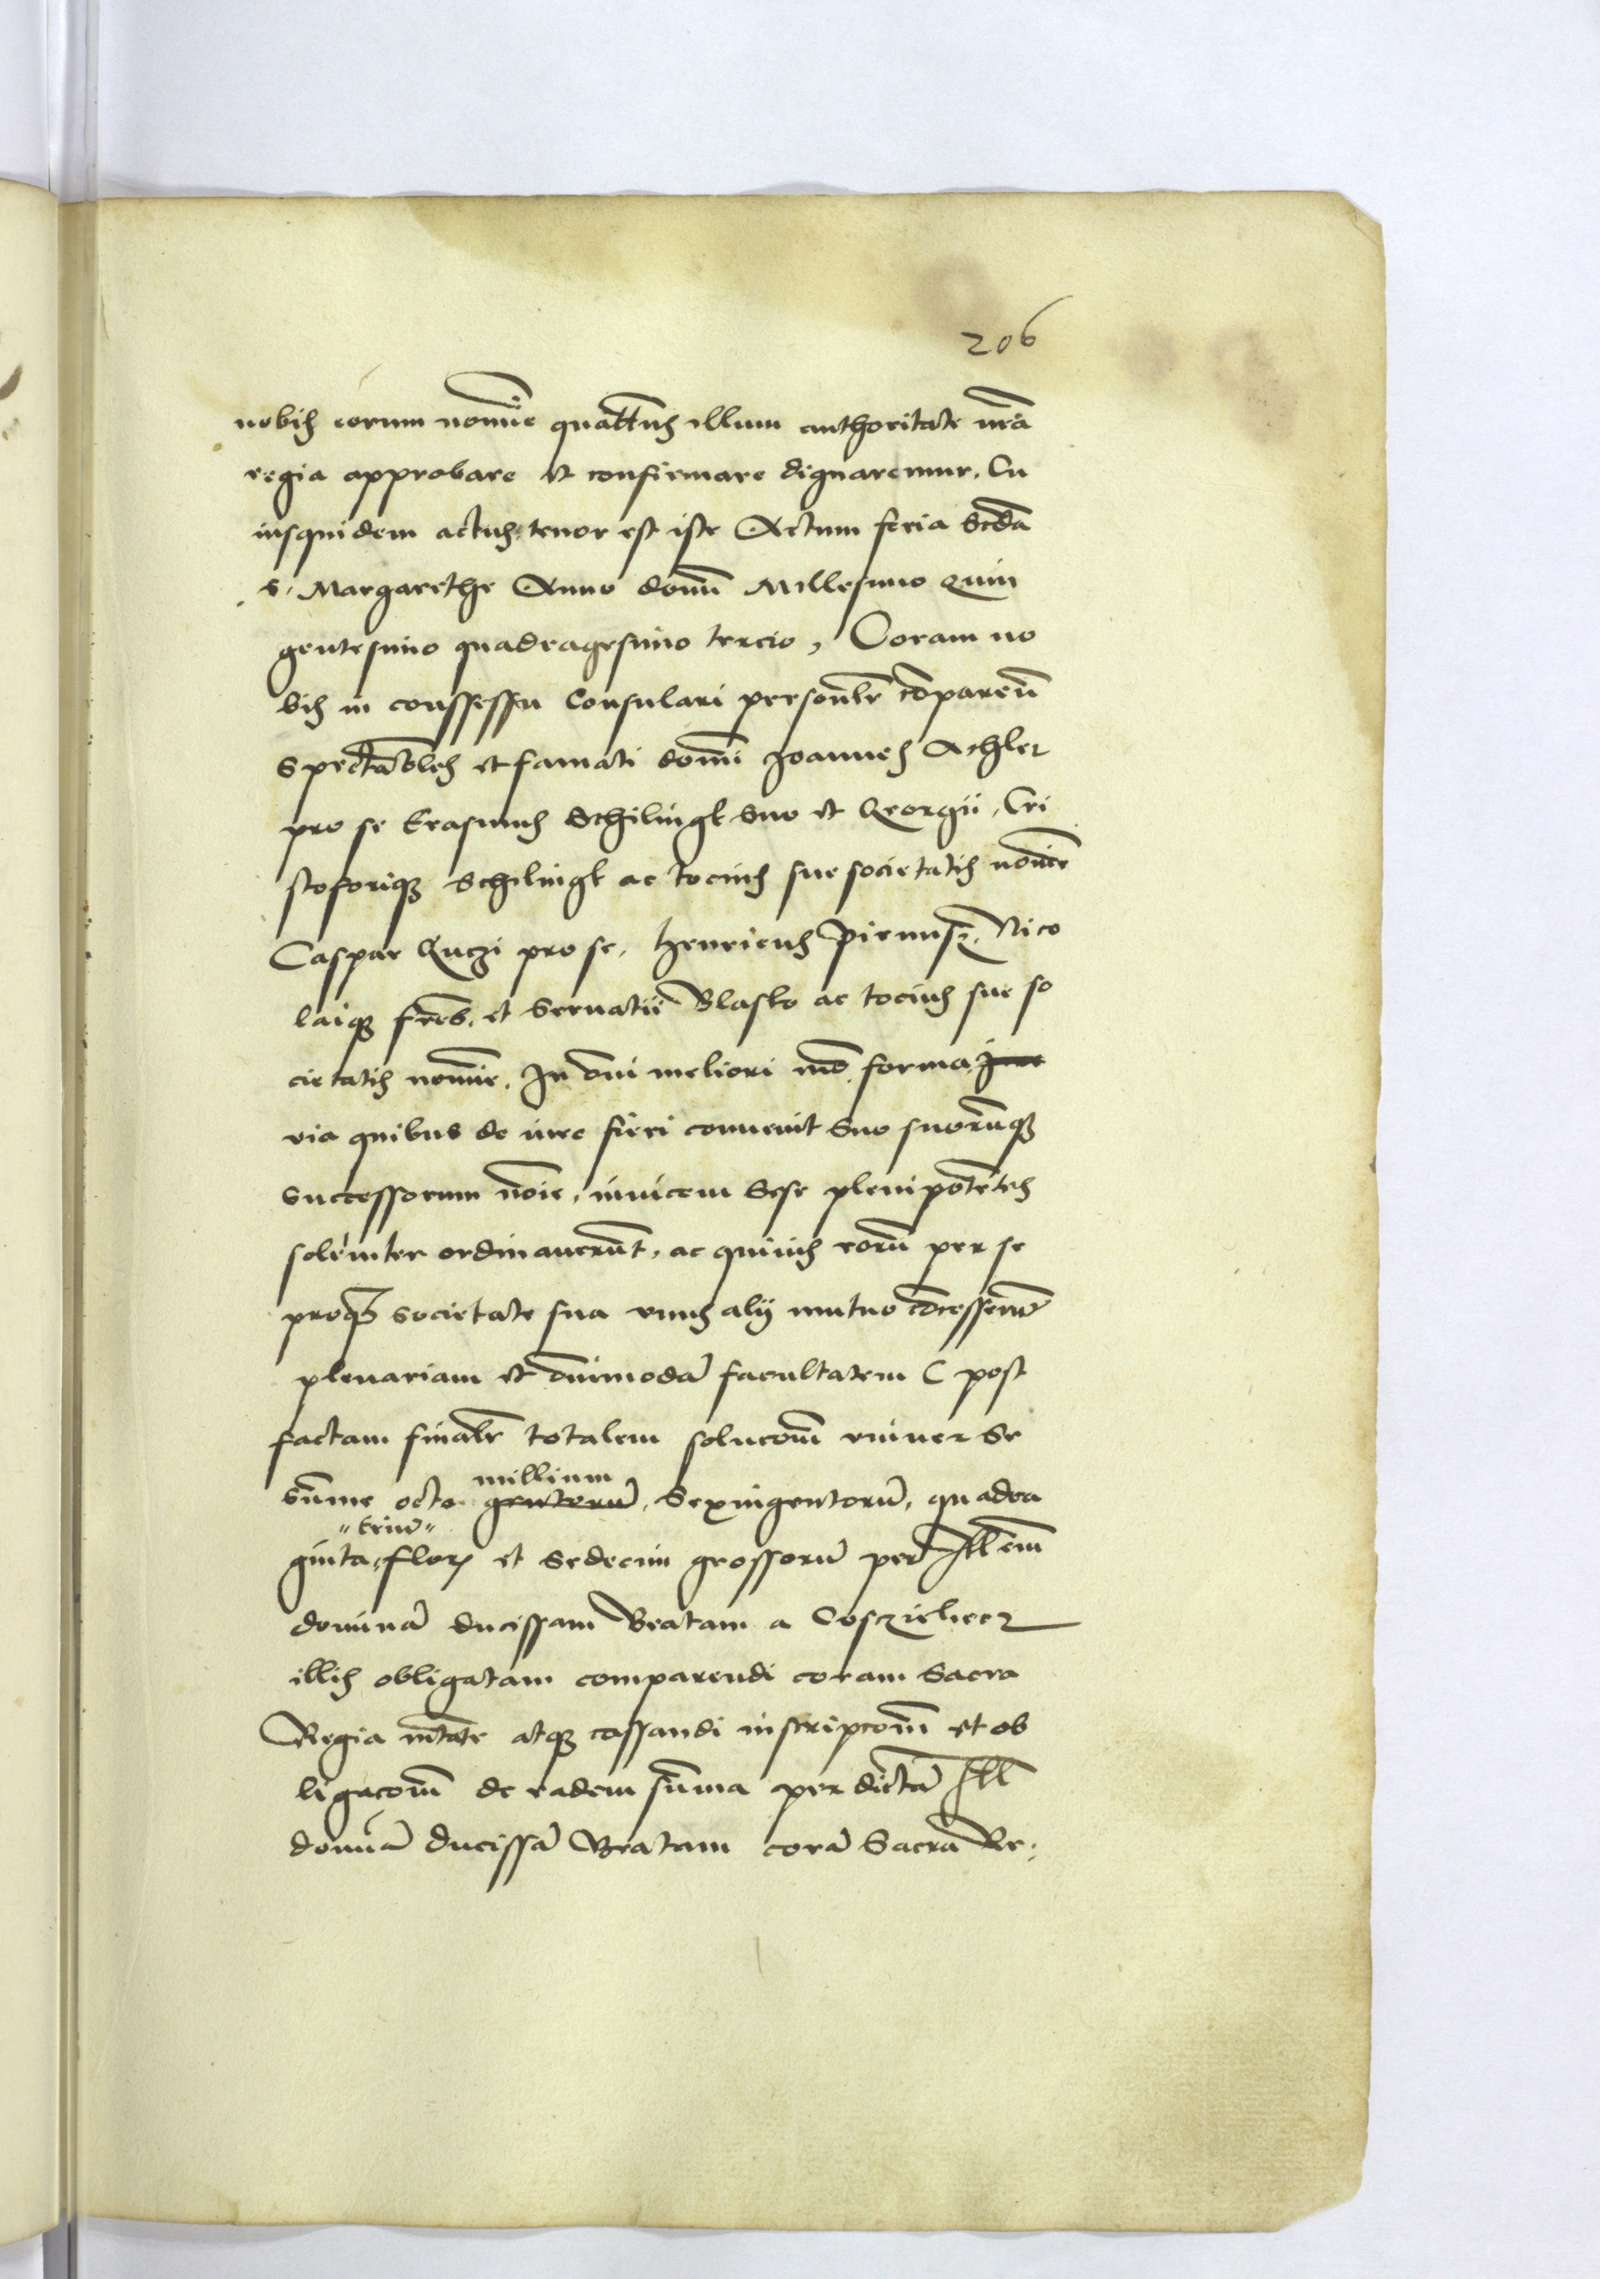 206
nobis eorum nomīe quatt̄nus illum authoritate nrā
regia approbare et confirmare dignaremur. Cu
iusquidem actus tenor est iste Actum feria Scdā
s. Margarethe Anno domī Millesimo Quin
gentesimo quadragesimo tercio, Coram no
bis in conssessu Consulari personlr̄ cōparen̄
Spectābles et famati domī Joannes Achler
pro se Erasmus Schilingk suo et Georgii, Cri
stoforiqȝ Schilingk ac tocius sue societatis nomīe
Caspar Guczi pro se. Henricus Pirnus, Nico
laiqȝ frēs. et Seruatii Blasko ac tocius sue so
cietatis nomīe. In ōni meliori mō. forma
via quibus de iure fieri conuenit Suo suorūqȝ
successorum nōie, inuicem Sese plenipotētes
solēniter ordinauerūt, ac quiuis eorū per se
proqȝ societate sua unus alij mutuo cōcesserūt
plenariam et ōnimodā facultatem C post
factam finalē totalem solucom̄ uniuer Se
sūme octo gentorū millium Sexingentorū, quadra
ginta triū flor et Sedecim grossorū per Illem̄
dominā ducissam Beatam a Cosczielecz
illis obligatam comparendi coram Sacra
Regia mtāte atqȝ cassandi inscripcom̄ et ob
ligacom̄ de eadem sūma per dictā Ill
domīā ducissā Beatam corā Sacra Re.